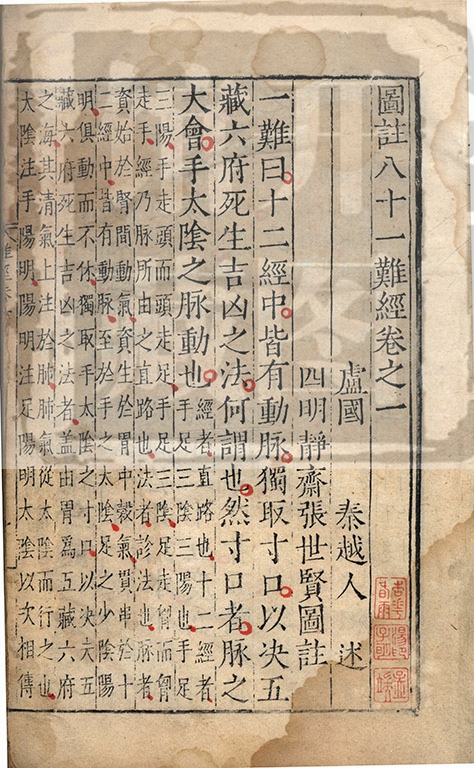 圖註八十一難經卷之一
盧國 秦越人 述
四明靜齋張世賢圖註
一難曰十二經中皆有動脉獨取寸口以决五
藏六府死生吉凶之法何謂也然寸口者脉之
大會手太陰之脉動也
經者直路也十二經者
手足三陰三陽也手足
三陽手走頭而頭走足手足三陰足走胷而胷
走手經乃脉所由之直路也法者診法也脉者
資始於腎間動氣資生於胃中穀氣貫串於十
二經中皆有動脉至於手之太陰足之少陰陽
明俱動而不休獨取手太陰之寸口以决夫五
藏六府死生吉凶之法者蓋由胃爲五藏六府
之海其清氣上注於肺肺氣從太陰而行之也
太陰注手陽明陽明注足陽明太陰以次相傳